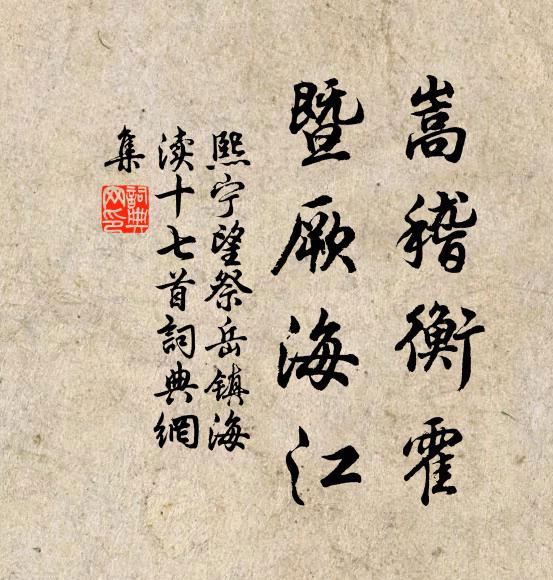 嵩稽衡霍
暨厥海江
熙宁望祭岳镇海
渎十七首詞典網
集
詞典
网印